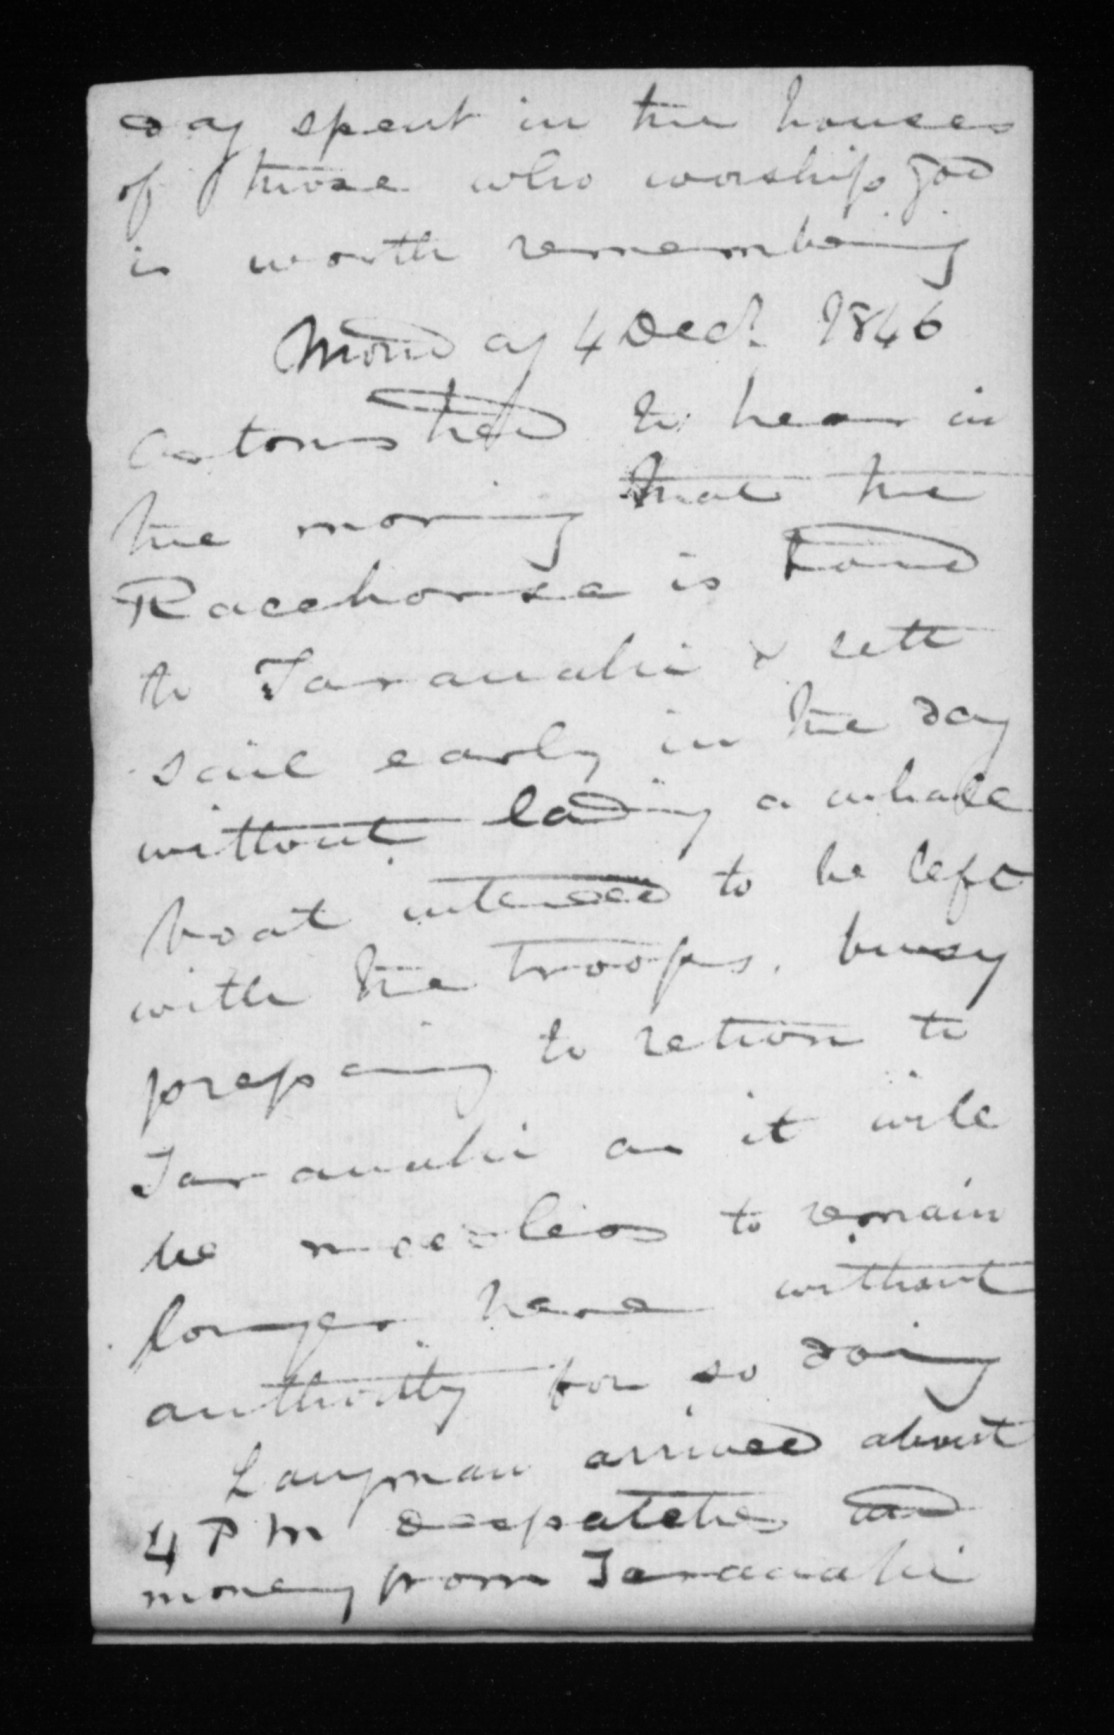 day spent in the houses
of those who worship God
is worth remembering
Monday 4 Decr. 1846
Astonished to hear in
the morning that the
Racehorse is bound
to Taranaki & sett
sail early in the day
without landing a whale
boat intended to be left
with the troops. busy
preparing to return to
Taranaki as it will
be needless to remain
longer here without
authority for so doing
Langman arrived about
4 P M despatches and
money from Taranaki